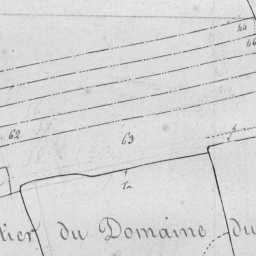 64
66
62
63
lier du Domaine du